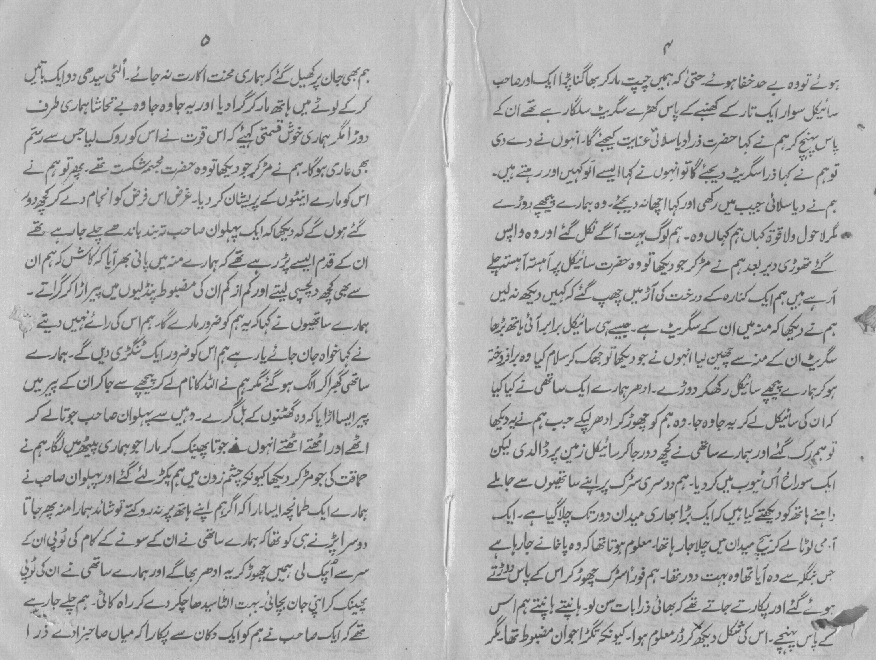 ۴
ہوئے تو وہ بے حد خفا ہوئے۔ حتیٰ کہ ہمیں چپت مار کر بھاگنا پڑا ایک اور صاحب
سائیکل سوار ایک تار کے کھمبے کے پاس کھڑے سگریٹ سلگا رہے تھے ان کے
پاس پہنچ کر ہم نے کہا حضرت ذرا دیا سلائی عنایت کیجئے گا۔ انہوں نے دے دی
تو ہم نے کہا ذرا سگریٹ دیجئے گا تو انہوں نے کہا ایسے اُلو کہیں اور رہتے ہیں۔
ہم نے دیا سلائی جیب میں رکھی اور کہا اچھا نہ دیجئے۔ وہ ہمارے پیچھے دوڑے
مگر لاحول ولا قوۃ کہاں ہم کہاں وہ۔ ہم لوگ بہت آگے نکل گئے اور وہ واپس
گئے تھوڑی دیر بعد ہم نے مڑ کر جو دیکھا تو وہ حضرت سائیکل پر آہستہ آہستہ چلے
آ رہے ہیں ہم ایک کنارہ کے درخت کی آڑ میں چھپ گئے کہ کہیں دیکھ نہ لیں
ہم نے دیکھا کہ منہ میں ان کے سگریٹ ہے۔ جیسے ہی سائیکل برابر آئی ہاتھ بڑھا
سگریٹ ان کے منہ سے چھین لیا انہوں نے جو دیکھا تو جھک کر سلام کیا وہ برافروختہ
ہو کر ہمارے پیچھے سائیکل رکھ کر دوڑے۔ ادھر ہمارے ایک ساتھی نے کیا کیا
کہ ان کی سائیکل لے کر یہ جا وہ جا۔ وہ ہم کو چھوڑ کر ادھر لپکے جب ہم نے یہ دیکھا
تو ہم رک گئے اور ہمارے ساتھی نے کچھ دور جا کر سائیکل زمین پر ڈالدی لیکن
ایک سوراخ اُس ٹیوب میں کر دیا۔ ہم دوسری سڑک پر اپنے ساتھیوں سے جا ملے
داہنے ہاتھ کو دیکھتے کیا ہیں کہ ایک بڑا بھاری میدان دور تک چلا گیا ہے۔ ایک
آدمی لوٹا لے کر بیچ میدان میں چلا جا رہا تھا۔ معلوم ہوتا تھا کہ وہ پاخانے جا رہا ہے
جس بنگلہ سے وہ آیا تھا وہ بہت دور تھا۔ ہم فوراً سڑک چھوڑ کر اس کے پاس دوڑتے
ہوئے گئے اور پکارتے جاتے تھے کہ بھائی ذرا بات سن لو۔ ہانپتے ہانپتے ہم اس
کے پاس پہنچے۔ اس کی شکل دیکھ کر ڈر معلوم ہوا۔ کیونکہ تگڑا جوان مضبوط تھا۔ مگر
۵
ہم بھی جان پر کھیل گئے کہ ہماری محنت اکارت نہ جائے۔ اُلٹی سیدھی دو ایک باتیں
کر کے لوٹے میں ہاتھ مار کر گرا دیا اور یہ جا وہ جا وہ بے تحاشا ہماری طرف
دوڑا مگر ہماری خوش قسمتی کہیے کہ اس قوت نے اس کو روک لیا جس سے رستم
بھی عاری ہوگا۔ ہم نے مڑ کر جو دیکھا تو وہ حضرت مجسم شکست تھے۔ پھر تو ہم نے
اس کو مارے اینٹوں کے پریشان کر دیا۔ غرض اس فرض کو انجام دے کر کچھ دور
گئے ہوں گے کہ دیکھا کہ ایک پہلوان صاحب تہ بند باندھے چلے جا رہے تھے
ان کے قدم ایسے پڑ رہے تھے کہ ہمارے منہ میں پانی بھر آیا کہ کاش کہ ہم ان
سے بھی کچھ دلچسپی لیتے اور کم از کم ان کی مضبوط پنڈلیوں میں پیر اڑا کر گراتے۔
ہمارے ساتھیوں نے کہا کہ یہ ہم کو ضرور مارے گا۔ ہم اس کی رائے نہیں دیتے
نے کہا خواہ جان جائے یا رہے ہم اس کو ضرور ایک ٹنگڑی دیں گے۔ ہمارے
ساتھی گھبرا کر الگ ہو گئے مگر ہم نے اللہ کا نام لے کر پیچھے سے جا کر ان کے پیر میں
پیر ایسا اڑایا کہ وہ گھٹنوں کے بل گرے۔ وہیں سے پہلوان صاحب جوتا لے کر
اٹھے اور اٹھتے اٹھتے انہوں نے جوتا پھینک کر مارا جو ہماری پیٹھ میں لگا۔ ہم نے
حماقت کی جو مڑ کر دیکھا کیونکہ چشم زدن میں ہم پکڑ لئے گئے اور پہلوان صاحب نے
ہمارے ایک طمانچہ ایسا مارا کہ اگر ہم اپنے ہاتھ پر نہ روکتے تو شاید ہمارا منہ پھر جاتا
دوسرا پڑنے ہی کو تھا کہ ہمارے ساتھی نے ان کے سونے کے کام کی ٹوپی ان کے
سر سے اُچک لی ہمیں چھوڑ کر یہ ادھر بھاگے اور ہمارے ساتھی نے ان کی ٹوپی
پھینک کر اپنی جان بچائی۔ بہت الٹا سیدھا چکر دے کر راہ کاٹی۔ ہم چلے جا رہے
تھے کہ ایک صاحب نے ہم کو ایک دکان سے پکارا کہ میاں صاحبزادے ذرا